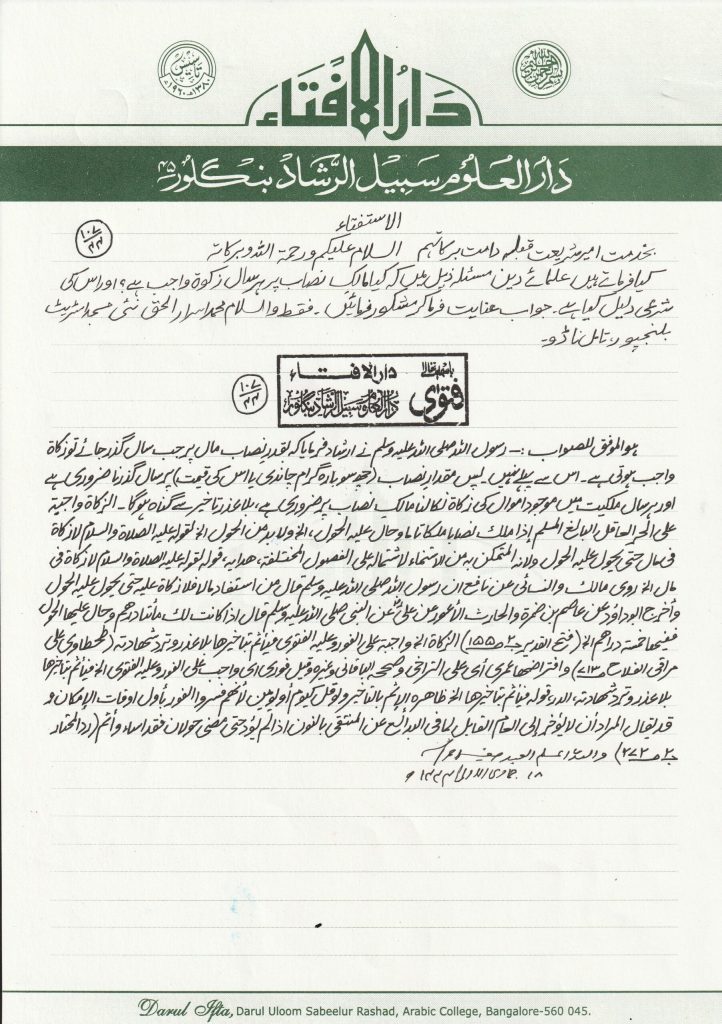 دارالافتاء
تاسیس
۱۳۸۰ھ ۱۹۶۰ء
بسم اللہ الرحمن الرحیم
دارالعلوم سبیل الرشاد بنگلور ۴۵
الاستفتاء
۱۰۷/۴۳
بخدمت امیر شریعت قبلہ دامت برکاتہم السلام علیکم ورحمۃ اللہ وبرکاتہ
کیا فرماتے ہیں علمائے دین مسئلہ ذیل میں کہ کیا مالک نصاب پر ہر سال زکوۃ واجب ہے؟ اور اس کی
شرعی دلیل کیا ہے۔ جواب عنایت فرماکر مشکور فرمائیں۔ فقط والسلام محمد اسرار الحق نئی مسجد اسٹریٹ
بلنجپور، تامل ناڈو۔
باسمہ تعالی
فتوی
دارالافتاء
دارالعلوم سبیل الرشاد بنگلور
۱۰۷/۴۳
ہو الموفق للصواب :- رسول اللہ صلی اللہ علیہ وسلم نے ارشاد فرمایا کہ بقدر نصاب مال پر جب سال گذر جائے تو زکاۃ
واجب ہوتی ہے۔ اس سے پہلے نہیں۔ پس مقدار نصاب (چھ سو بارہ گرام چاندی یا اس کی قیمت) پر سال گذرنا ضروری ہے
اور ہر سال ملکیت میں موجود اموال کی زکاۃ نکالنا مالک نصاب پر ضروری ہے، بلاعذر تاخیر سے گناہ ہوگا۔ الزکاۃ واجبۃ
علی الحر العاقل البالغ المسلم إذا ملک نصابا ملکا تاما وحال علیہ الحول، الخ ولا بد من الحول الخ لقولہ علیہ الصلاۃ والسلام لا زکاۃ
فی مال حتی یحول علیہ الحول ولانہ المتمکن بہ من الاستنماء لاشتمالہ علی الفصول المختلفۃ، ہدایہ، قولہ لقولہ علیہ الصلاۃ والسلام لا زکاۃ فی
مال الخ روی مالک والنسائی عن نافع ان رسول اللہ صلی اللہ علیہ وسلم قال من استفاد مالا فلا زکاۃ علیہ حتی یحول علیہ الحول
وأخرج ابوداؤد عن عاصم بن ضمرۃ والحارث الأعور عن علیؓ عن النبی صلی اللہ علیہ وسلم قال اذا کانت لک مأتا درہم وحال علیہا الحول
ففیہا خمسۃ دراہم الخ (فتح القدیر ج۲ ص۱۵۵) الزکاۃ الخ واجبۃ علی الفور وعلیہ الفتوی فیأثم بتاخیرہا بلاعذر وترد شہادتہ (طحطاوی علی
مراقی الفلاح ص۷۱۳) وافتراضہا عمری أی علی التراخی وصححہ الباقانی وغیرہ وقیل فوری ای واجب علی الفور وعلیہ الفتوی الخ فیأثم بتاخیرہا
بلاعذر وترد شہادتہ، الدر، قولہ فیأثم بتاخیرہا الخ ظاہرہ الإثم بالتاخیر ولو قل کیوم أو یومین لأنہم فسروا الفور بأول اوقات الإمکان و
قد یقال المراد أن لا یؤخر إلی العام القابل لما فی البدائع عن المنتقی بالنون اذا لم یؤد حتی مضی حولان فقد اساء وأثم (ردالمحتار
ج۲ ص۲۷۲) واللہ اعلم العبد
۱۸ جمادی الاولی ۱۴۴۳ھ
Darul Ifta, Darul Uloom Sabeelur Rashad, Arabic College, Bangalore-560 045.